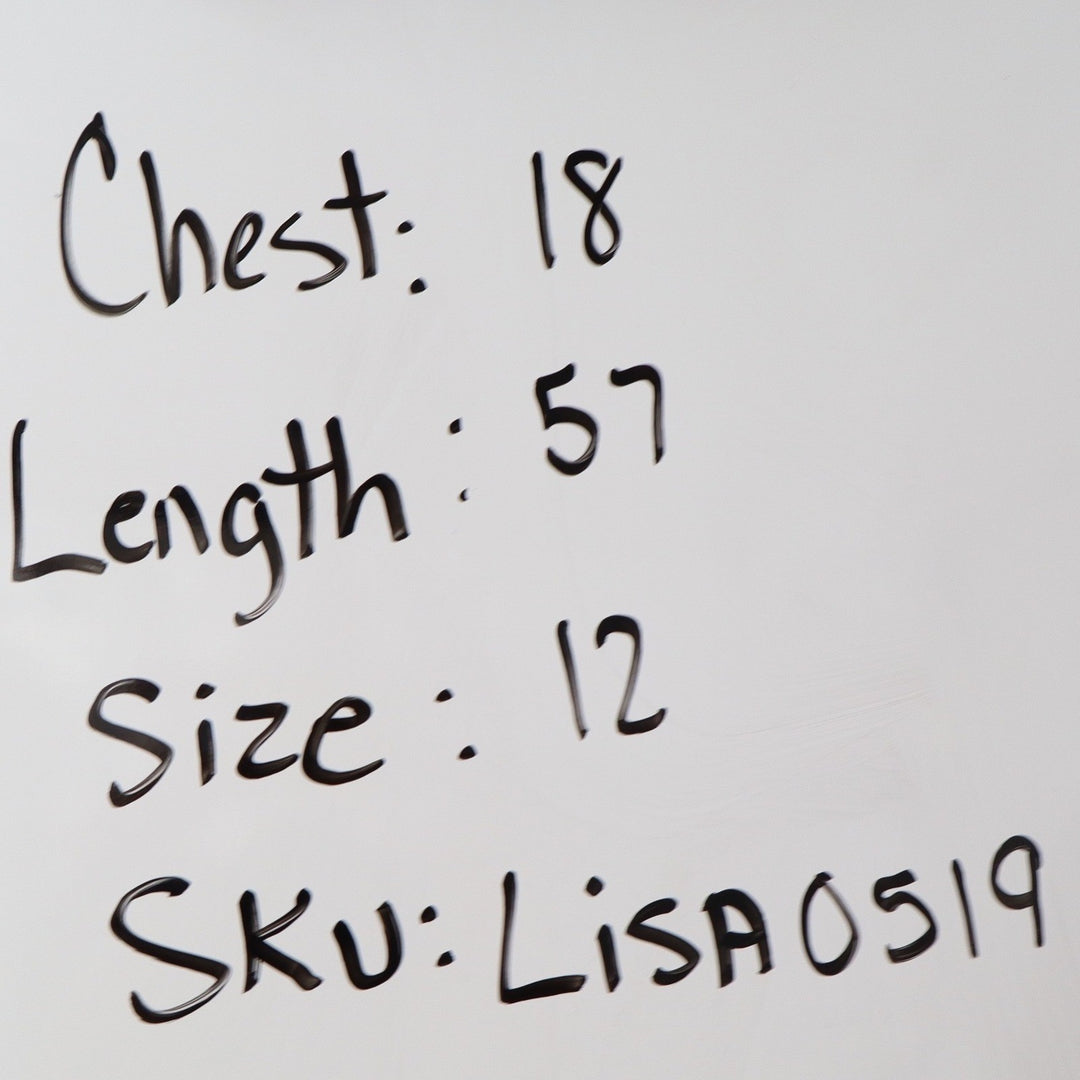 Chest: 18
Length: 57
Size: 12
SKU: LiSA0519